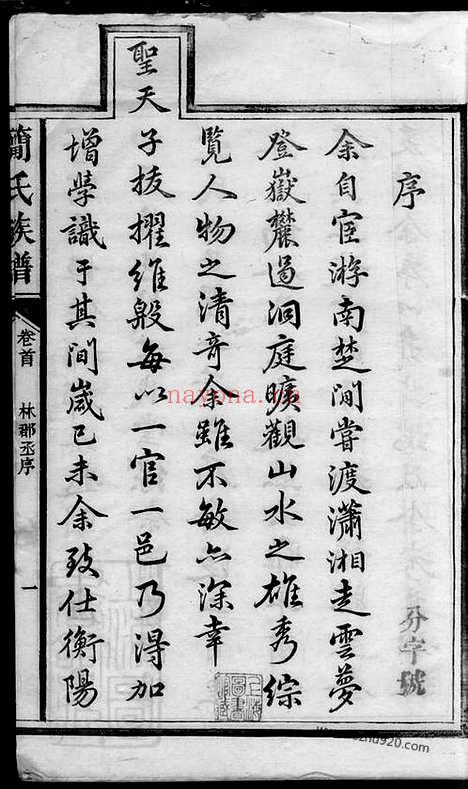 序
余自宦游南楚間嘗渡瀟湘走雲夢
登嶽麓過洞庭曠觀山水之雄秀綜
覽人物之清奇余雖不敏亦深幸
聖天子拔擢維殷每以一官一邑乃得加
增學識于其間歲己未余致仕衡陽
簡氏族譜
卷首
林郡丞序
一
分字號
nayona.cn